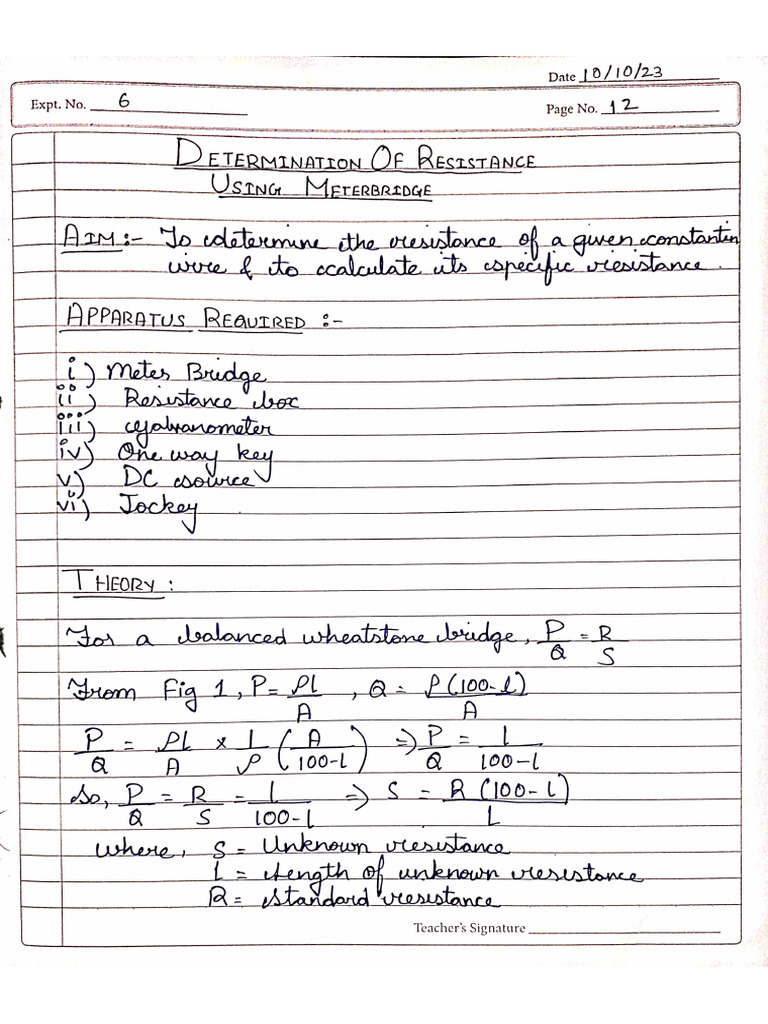 Date 10/10/23
Expt. No. 6
Page No. 12
DETERMINATION OF RESISTANCE
USING METERBRIDGE
AIM:- To determine the resistance of a given constantin
wire & to calculate its specific resistance.
APPARATUS REQUIRED :-
i) Meter Bridge
ii) Resistance box
iii) Galvanometer
iv) One way key
v) DC source
vi) Jockey
THEORY:
For a balanced wheatstone bridge, P/Q = R/S
From Fig 1, P = ρl/A , Q = ρ(100-l)/A
P/Q = ρl/A × 1/ρ (A/100-l) => P/Q = l/100-l
So, P/Q = R/S = l/100-l => S = R(100-l)/l
where, S = Unknown resistance
l = length of unknown resistance
R = standard resistance
Teacher's Signature